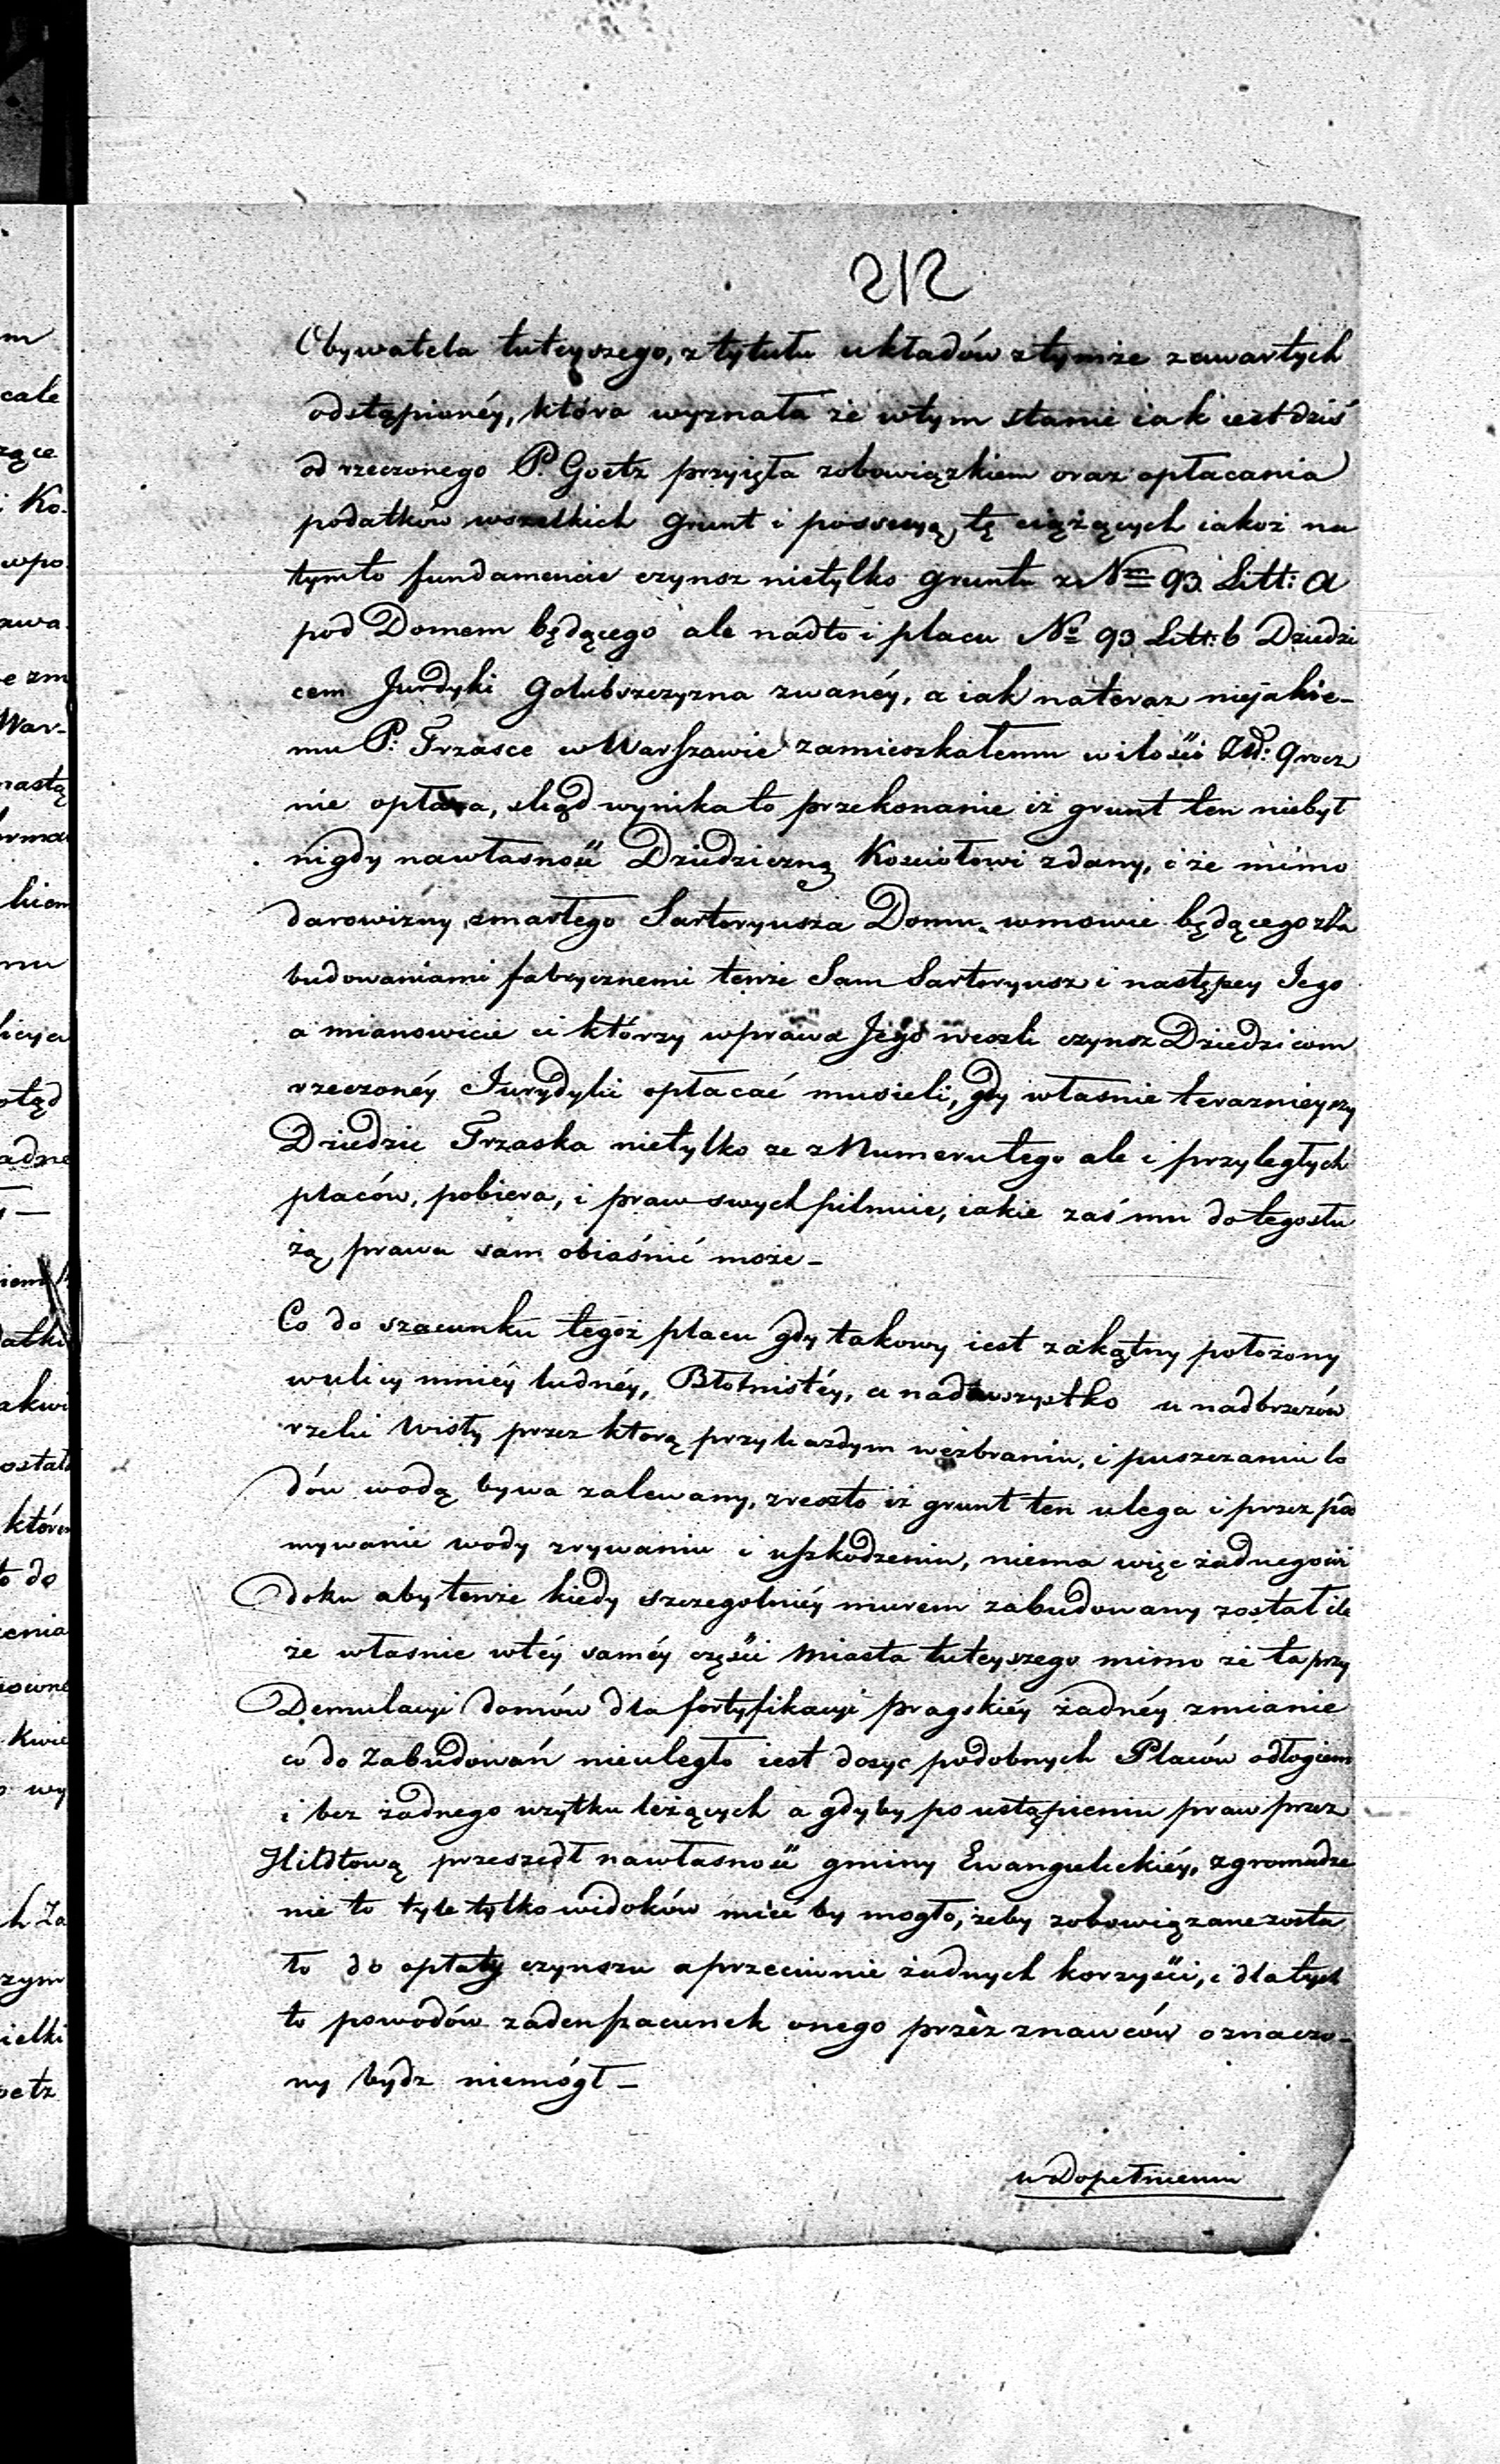 212
Obywatela tuteyszego, z tytułu układów z tymże zawartych
odstąpionéy, która wyznała że w tym stanie iak iest dziś
od rzeczonego P. Goetz przyięła zobowiązkiem oraz opłacania
podatków wszelkich grunt i possessyą tę ciążących iakoż na
tymto fundamencie czynsz nietylko gruntu z Nrm 93 Litt: a
pod Domem będącego ale nadto i placu No 93 Litt: b Dziedzi
cem Jurdyki Golubszczyzna zwanéy, a iak nateraz niejakie-
mu P: Trzasce w Warszawie zamieszkałemu w ilości Zł: 9 rocz
nie opłaca, skąd wynika to przekonanie iż grunt ten niebył
nigdy nawłasność Dziedziczną Kościołowi zdany, i że mimo
darowizny zmarłego Sartoryusza Domu wmowie będącego zza
budowaniami fabrycznemi tenże Sam Sartoryusz i następcy Jego
a mianowicie ci którzy wprawa Jego weszli czynsz Dziedzicom
rzeczonéy Jurydyki opłacać musieli, gdy własnie teraznieyszy
Dziedzic Trzaska nietylko ze z Numeru tego ale i przyległych
placów, pobiera, i praw swych pilnuie, iakie zaś mu do tego słu
żą prawa sam obiaśnić może_
Co do szacunku tegoż placu gdy takowy iest zakątny położony
wulicy mniéy ludnéy, Błotnistéy, a nadewszystko u nadbrzeżów
rzeki Wisły przez którą przy każdym wezbraniu, i puszczaniu lo
dów wodą bywa zalewany, zresztą iż grunt ten ulega i przez pod
mywanie wody zrywaniu i uszkodzeniu, niema więc żadnego wi
doku aby tenże kiedy szczegolniéy murem zabudowany został ile
że własnie wtéy saméy części Miasta tuteyszego mimo że ta przy
Demulacyi domów dla fortyfikacyi pragskiéy żadnéy zmianie
co do Zabudowań nieuległo iest dosyc podobnych Placów odłogiem
i bez żadnego uzytku leżących a gdyby po ustąpieniu praw przez
Hildtową przeszedł nawłasność gminy Ewangelickiéy, zgromadze
nie to tyle tylko widoków mieć by mogło, żeby zobowiązane zosta
ło do opłaty czynszu aprzeciwnie żadnych korzyści, i dla tych
to powodów żaden szacunek onego przez znawców oznaczo-
ny bydz niemógł_
w Dopełnieniu